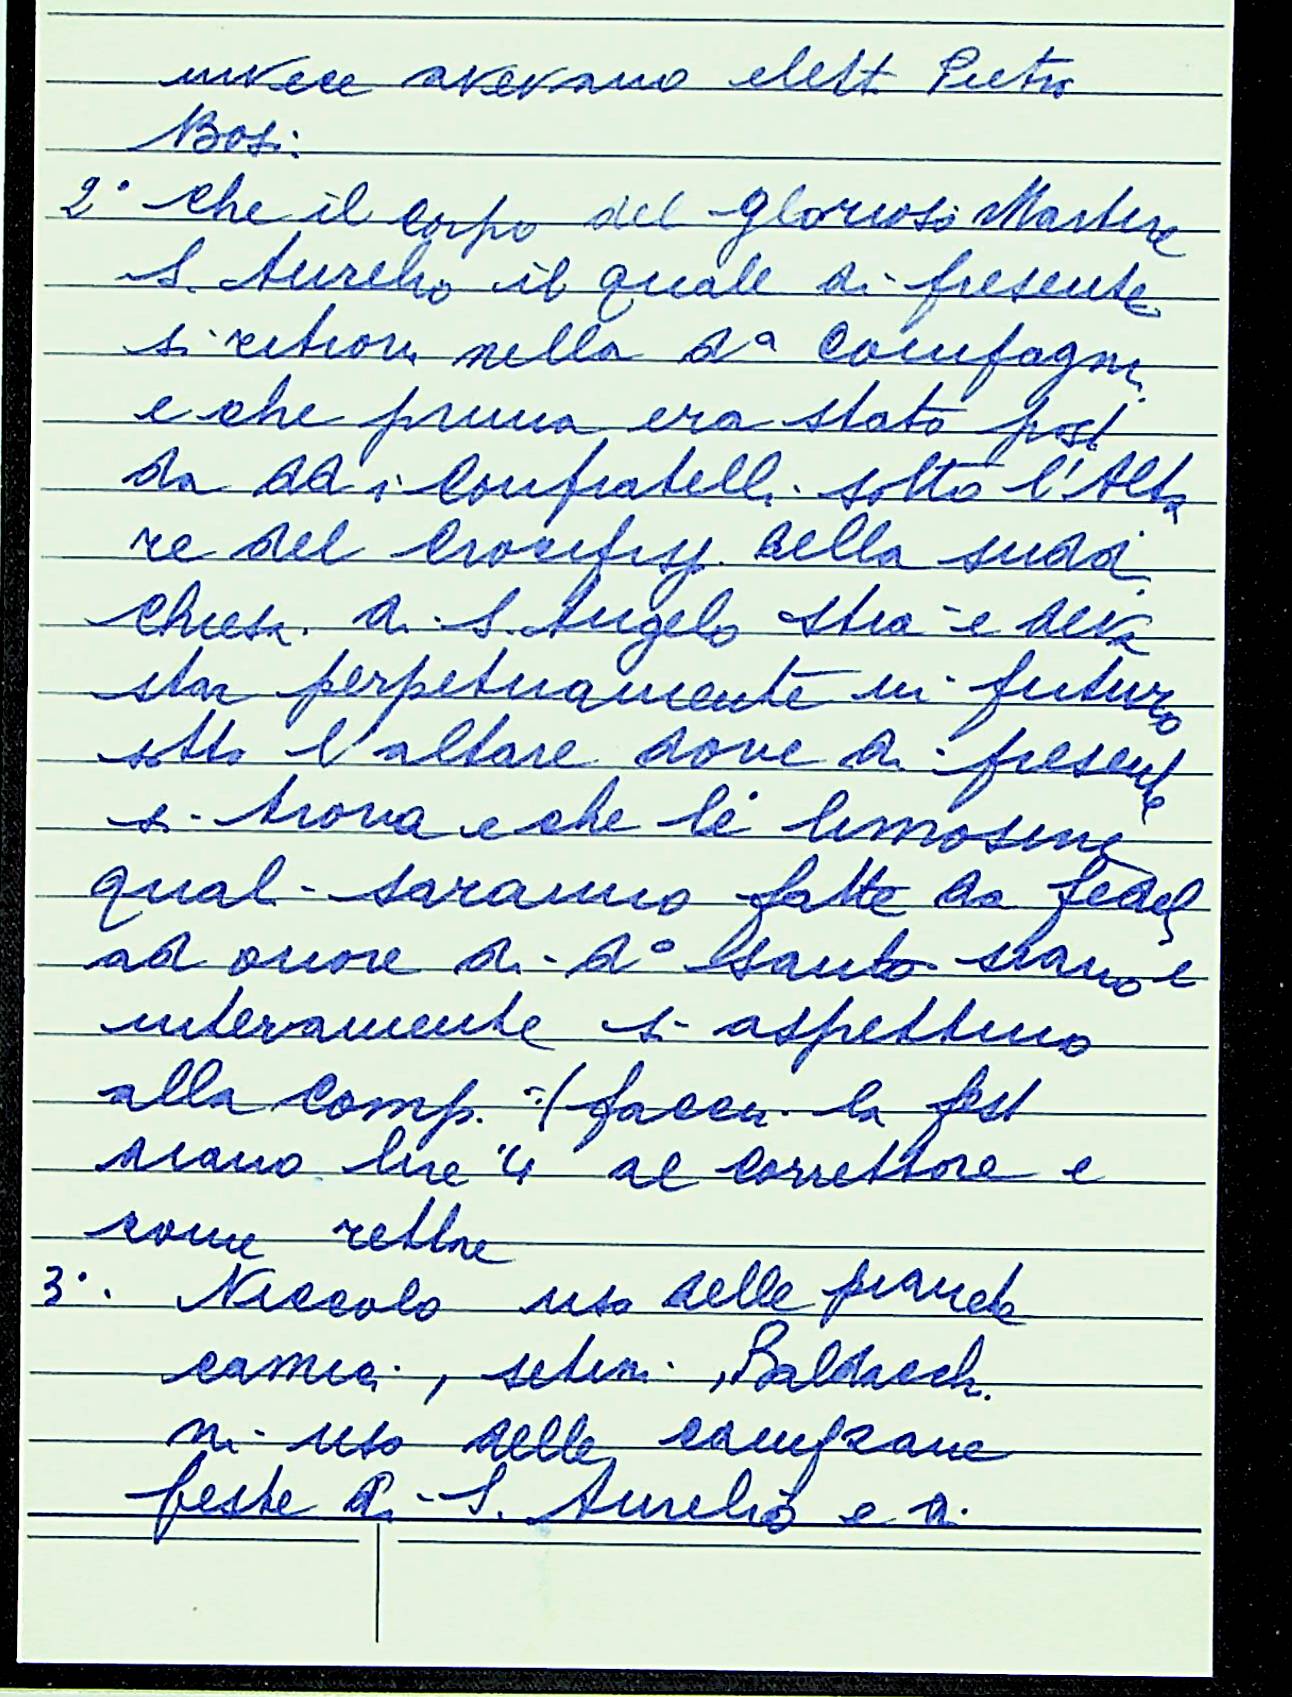 invece avevano elett. Pietro
Bosi.
2° che il corpo del glorioso Martire
S. Aurelio il quale di presente
si ritrova nella da Compagni
e che prima era stato post
da dd i Confratelli sotto l'Alta
re del Crocefiss. della sudd
chiesa di S. Angelo stia e deva
star perpetuamente in futuro
sotto l'altare dove di presente
si trova e che le limosine
quali saranno fatte da fedel
ad onore di do Santo siano e
interamente si aspettino
alla Comp. :/ faccia la fest
diano lire 4 al Correttore e
come rettore
3°. Niccolo uso delle pianete
camici, , Baldacchi
ni uso delle campane
feste di S. Aurelio e di